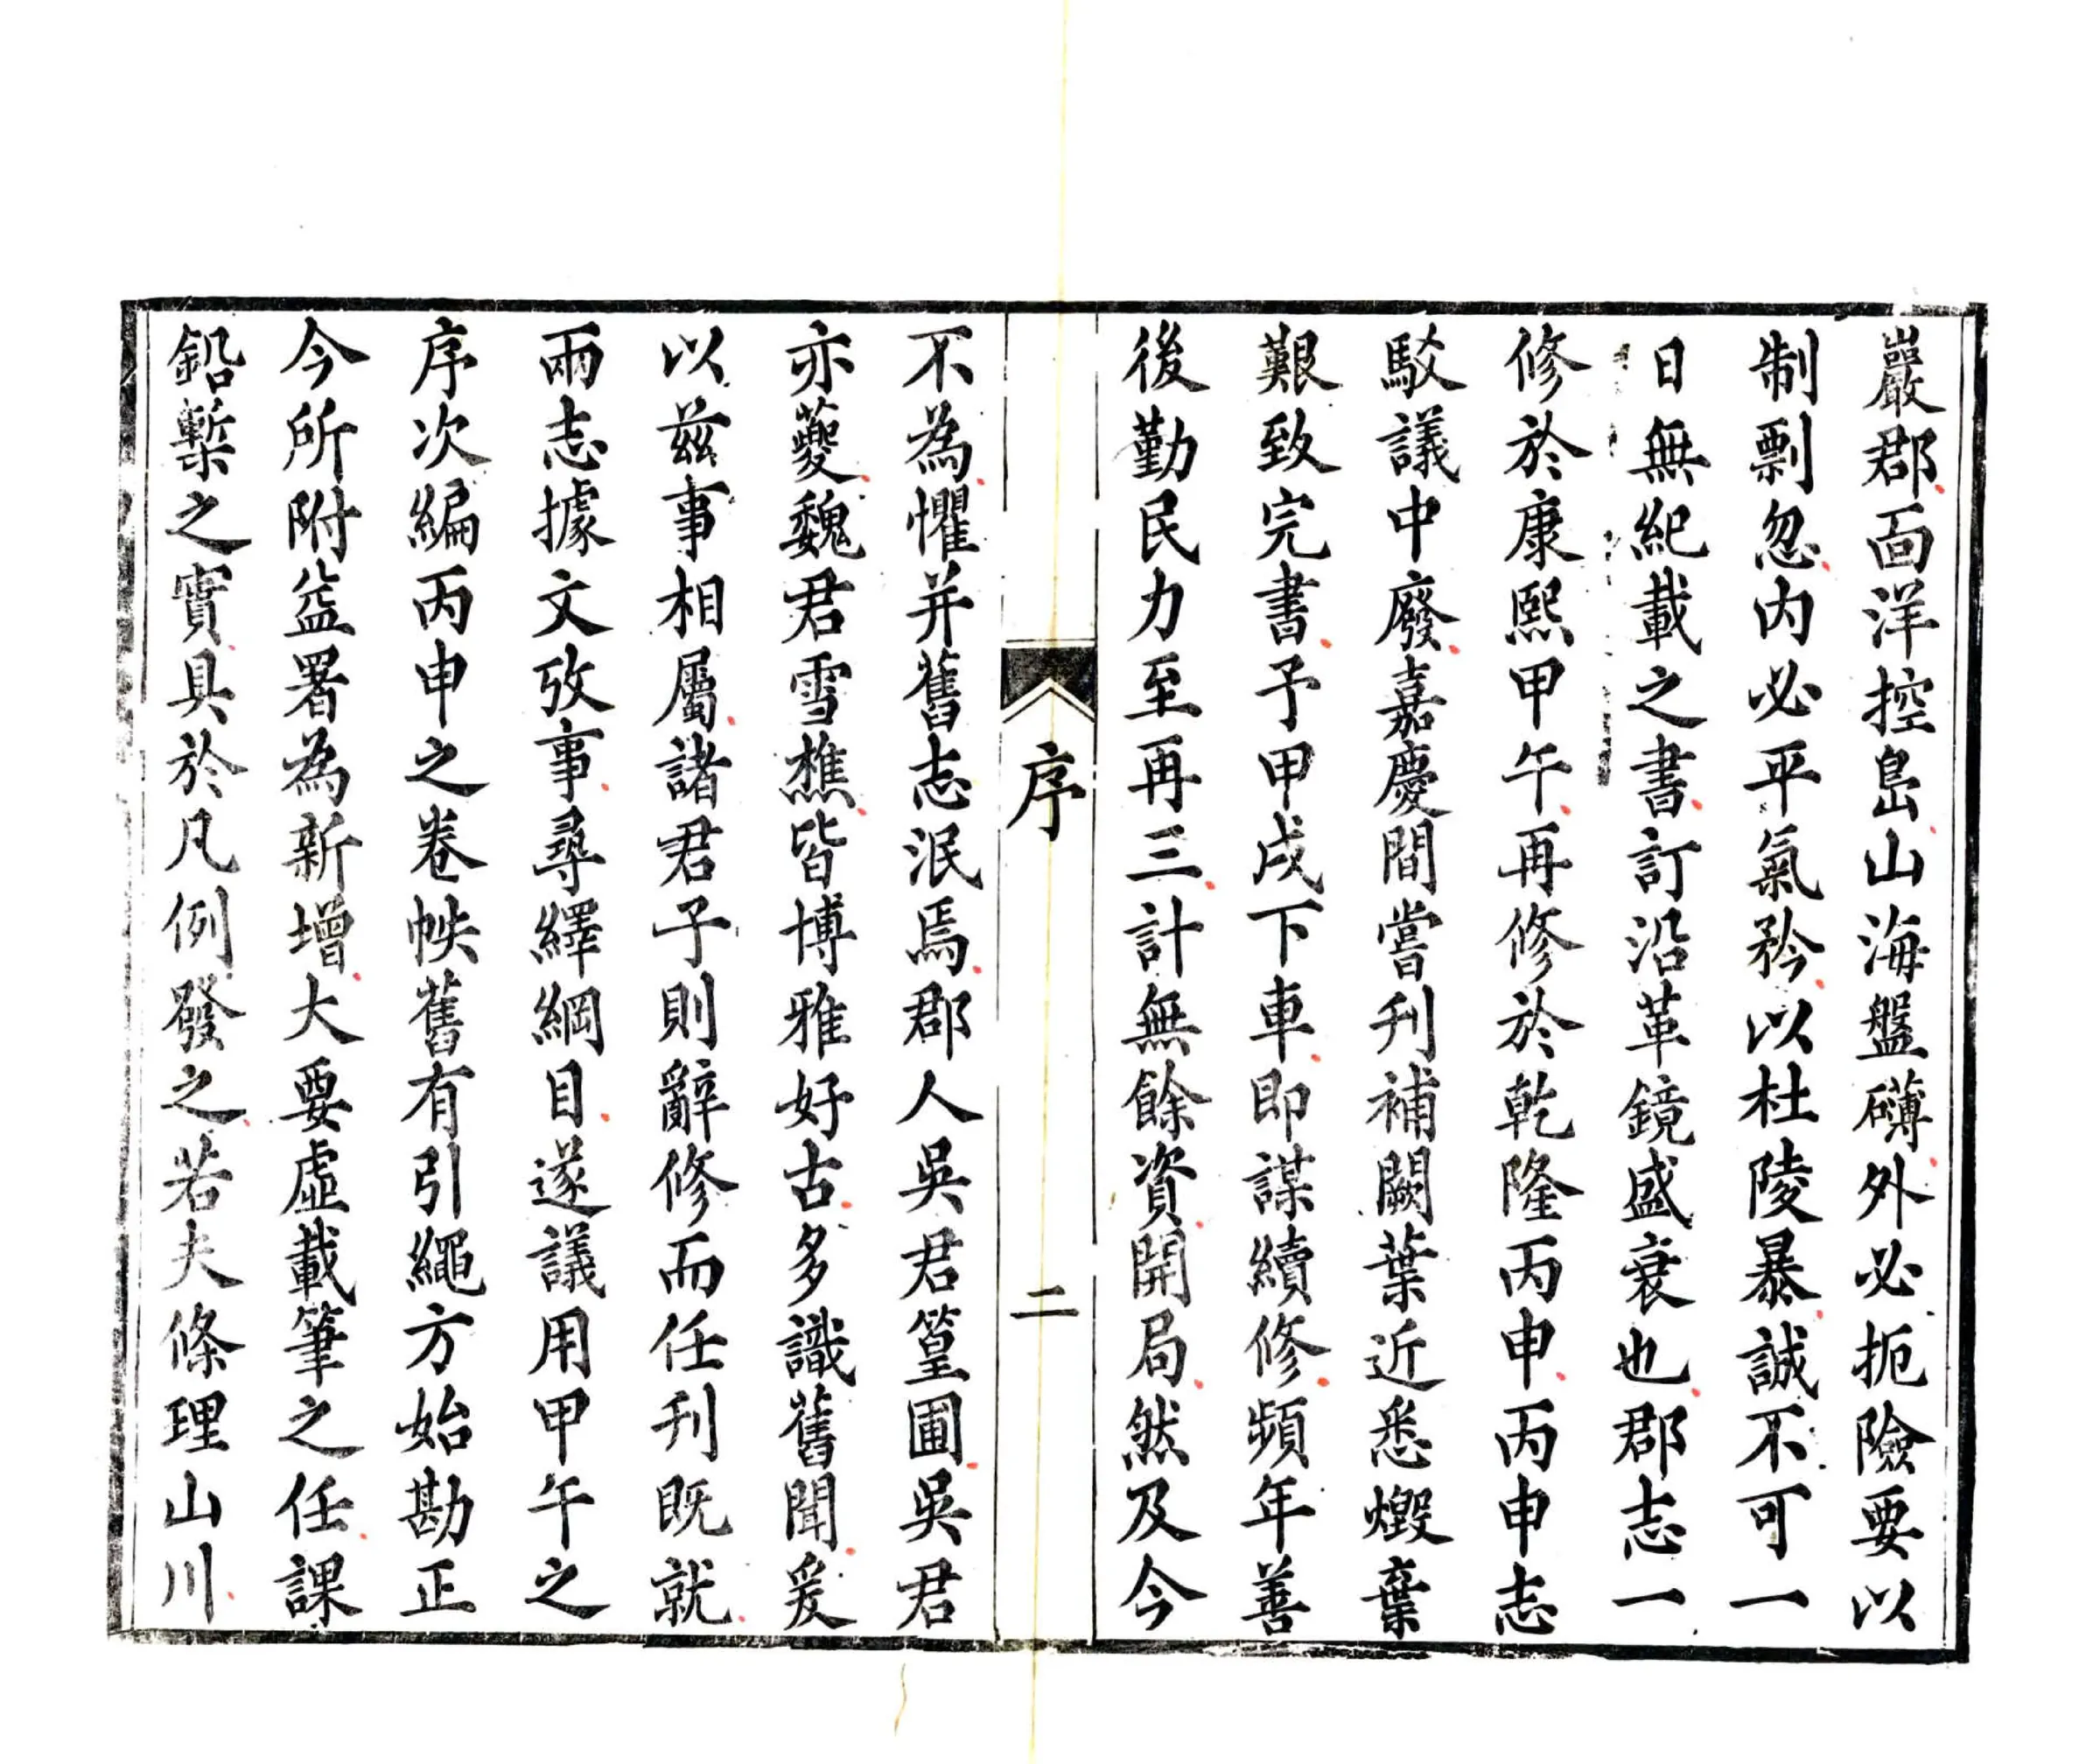 巖郡面洋控島山海盤礴外必扼險要以
制剽忽內必平氣矜以杜陵暴誠不可一
日無紀載之書訂沿革鏡盛衰也郡志一
修於康熙甲午再修於乾隆丙申丙申志
駁議中廢嘉慶間嘗刋補闕葉近悉燬棄
艱致完書予甲戌下車即謀續修頻年善
後勤民力至再三計無餘資開局然及今
序
二
不為懼并舊志泯焉郡人吳君篁圃吳君
亦夔魏君雪樵皆博雅好古多識舊聞爰
以兹事相屬諸君子則辭修而任刋既就
兩志據文攷事尋繹綱目遂議用甲午之
序次編丙申之卷帙舊有引繩方始勘正
今所附益署為新增大要虛載筆之任課
鉛槧之實具於凡例發之若夫條理山川